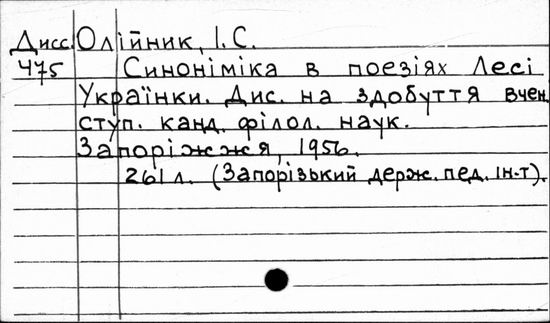 Дисс. Олійник, І.С.
475 Синоніміка в поезіях Лесі
Українки. Дис. на здобуття вчен.
ступ. канд. філол. наук.
Запоріжжя, 1956.
261 л. (Запорізький держ. пед. ін-т).